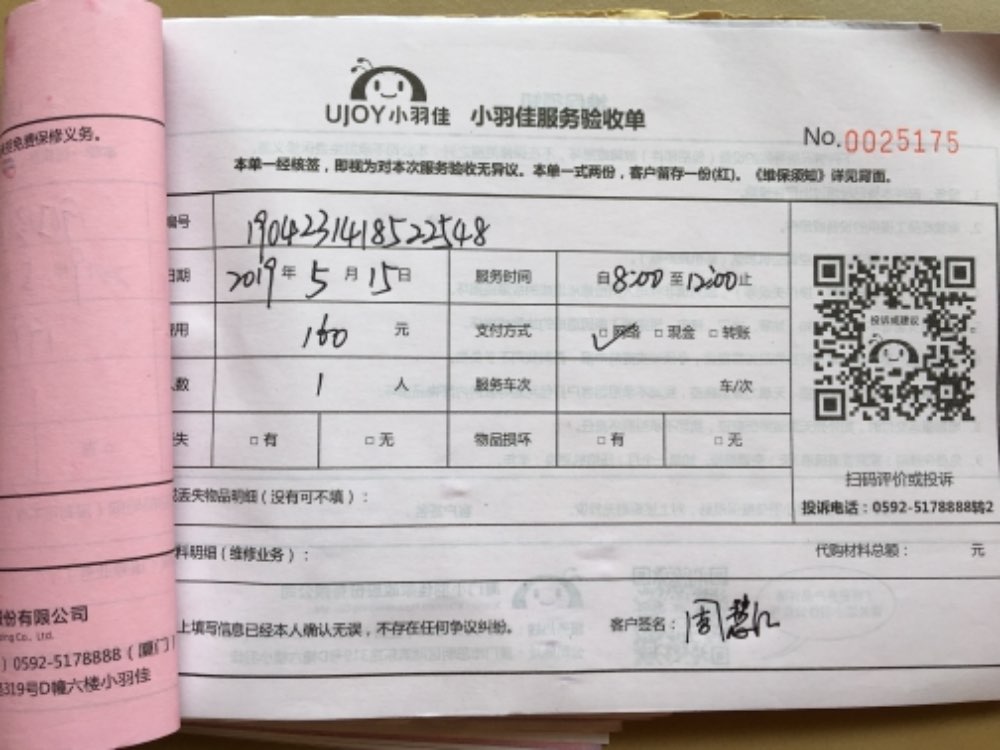 UJOY小羽佳 小羽佳服务验收单
No.0025175
本单一经核签，即视为对本次服务验收无异议。本单一式两份，客户留存一份(红)。《维保须知》详见背面。
编号 1904231418522548
日期 2019年5月15日 服务时间 自8:00至12:00止
用 160 元 支付方式 □网络 □现金 □转账
人数 1 人 服务车次 车/次
失 □有 □无 物品损坏 □有 □无
投诉或建议
扫码评价或投诉
投诉电话：0592-5178888转2
丢失物品明细（没有可不填）：
料明细（维修业务）： 代购材料总额： 元
上填写信息已经本人确认无误，不存在任何争议纠纷。 客户签名：周慧
免费保修义务。
份有限公司
ding Co., Ltd.
）0592-5178888（厦门）
319号D幢六楼小羽佳